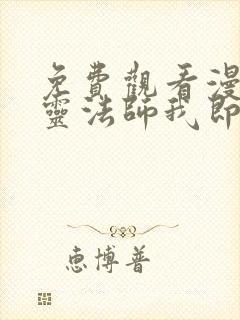 免費觀看漫
靈法師我即
惠博普